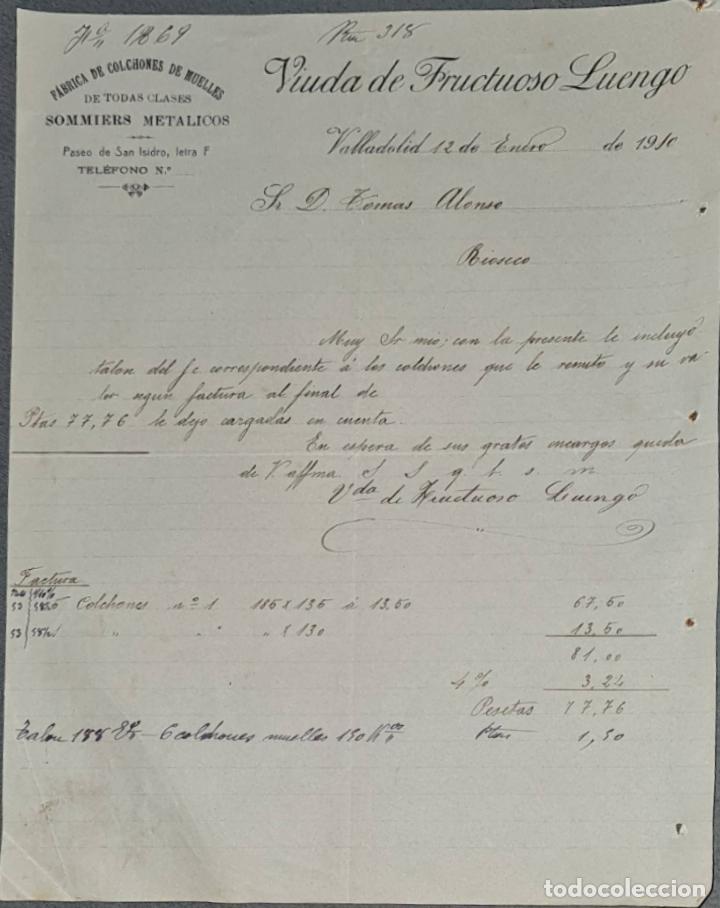 Fº 1869
Rn 318
FÁBRICA DE COLCHONES DE MUELLES
DE TODAS CLASES
SOMMIERS METALICOS
Paseo de San Isidro, letra F
TELÉFONO N.º
Viuda de Fructuoso Luengo
Valladolid 12 de Enero de 1910
Sr D. Tomas Alonso
Rioseco
Muy Sr mio; con la presente le incluyo
talon del fc correspondiente á los colchones que le remito y su va
lor segun factura al final de
Ptas 77,76 le dejo cargadas en cuenta.
En espera de sus gratos encargos queda
de V. affma S S q b s m
Vda de Fructuoso Luengo
Factura
Colchones nº 1 185 x 135 á 13,50 67,50
" " " x 130 13,50
81,00
4 % 3,24
Pesetas 77,76
Talon 188 6 colchones muelles 150 Kos 1,50
todocoleccion